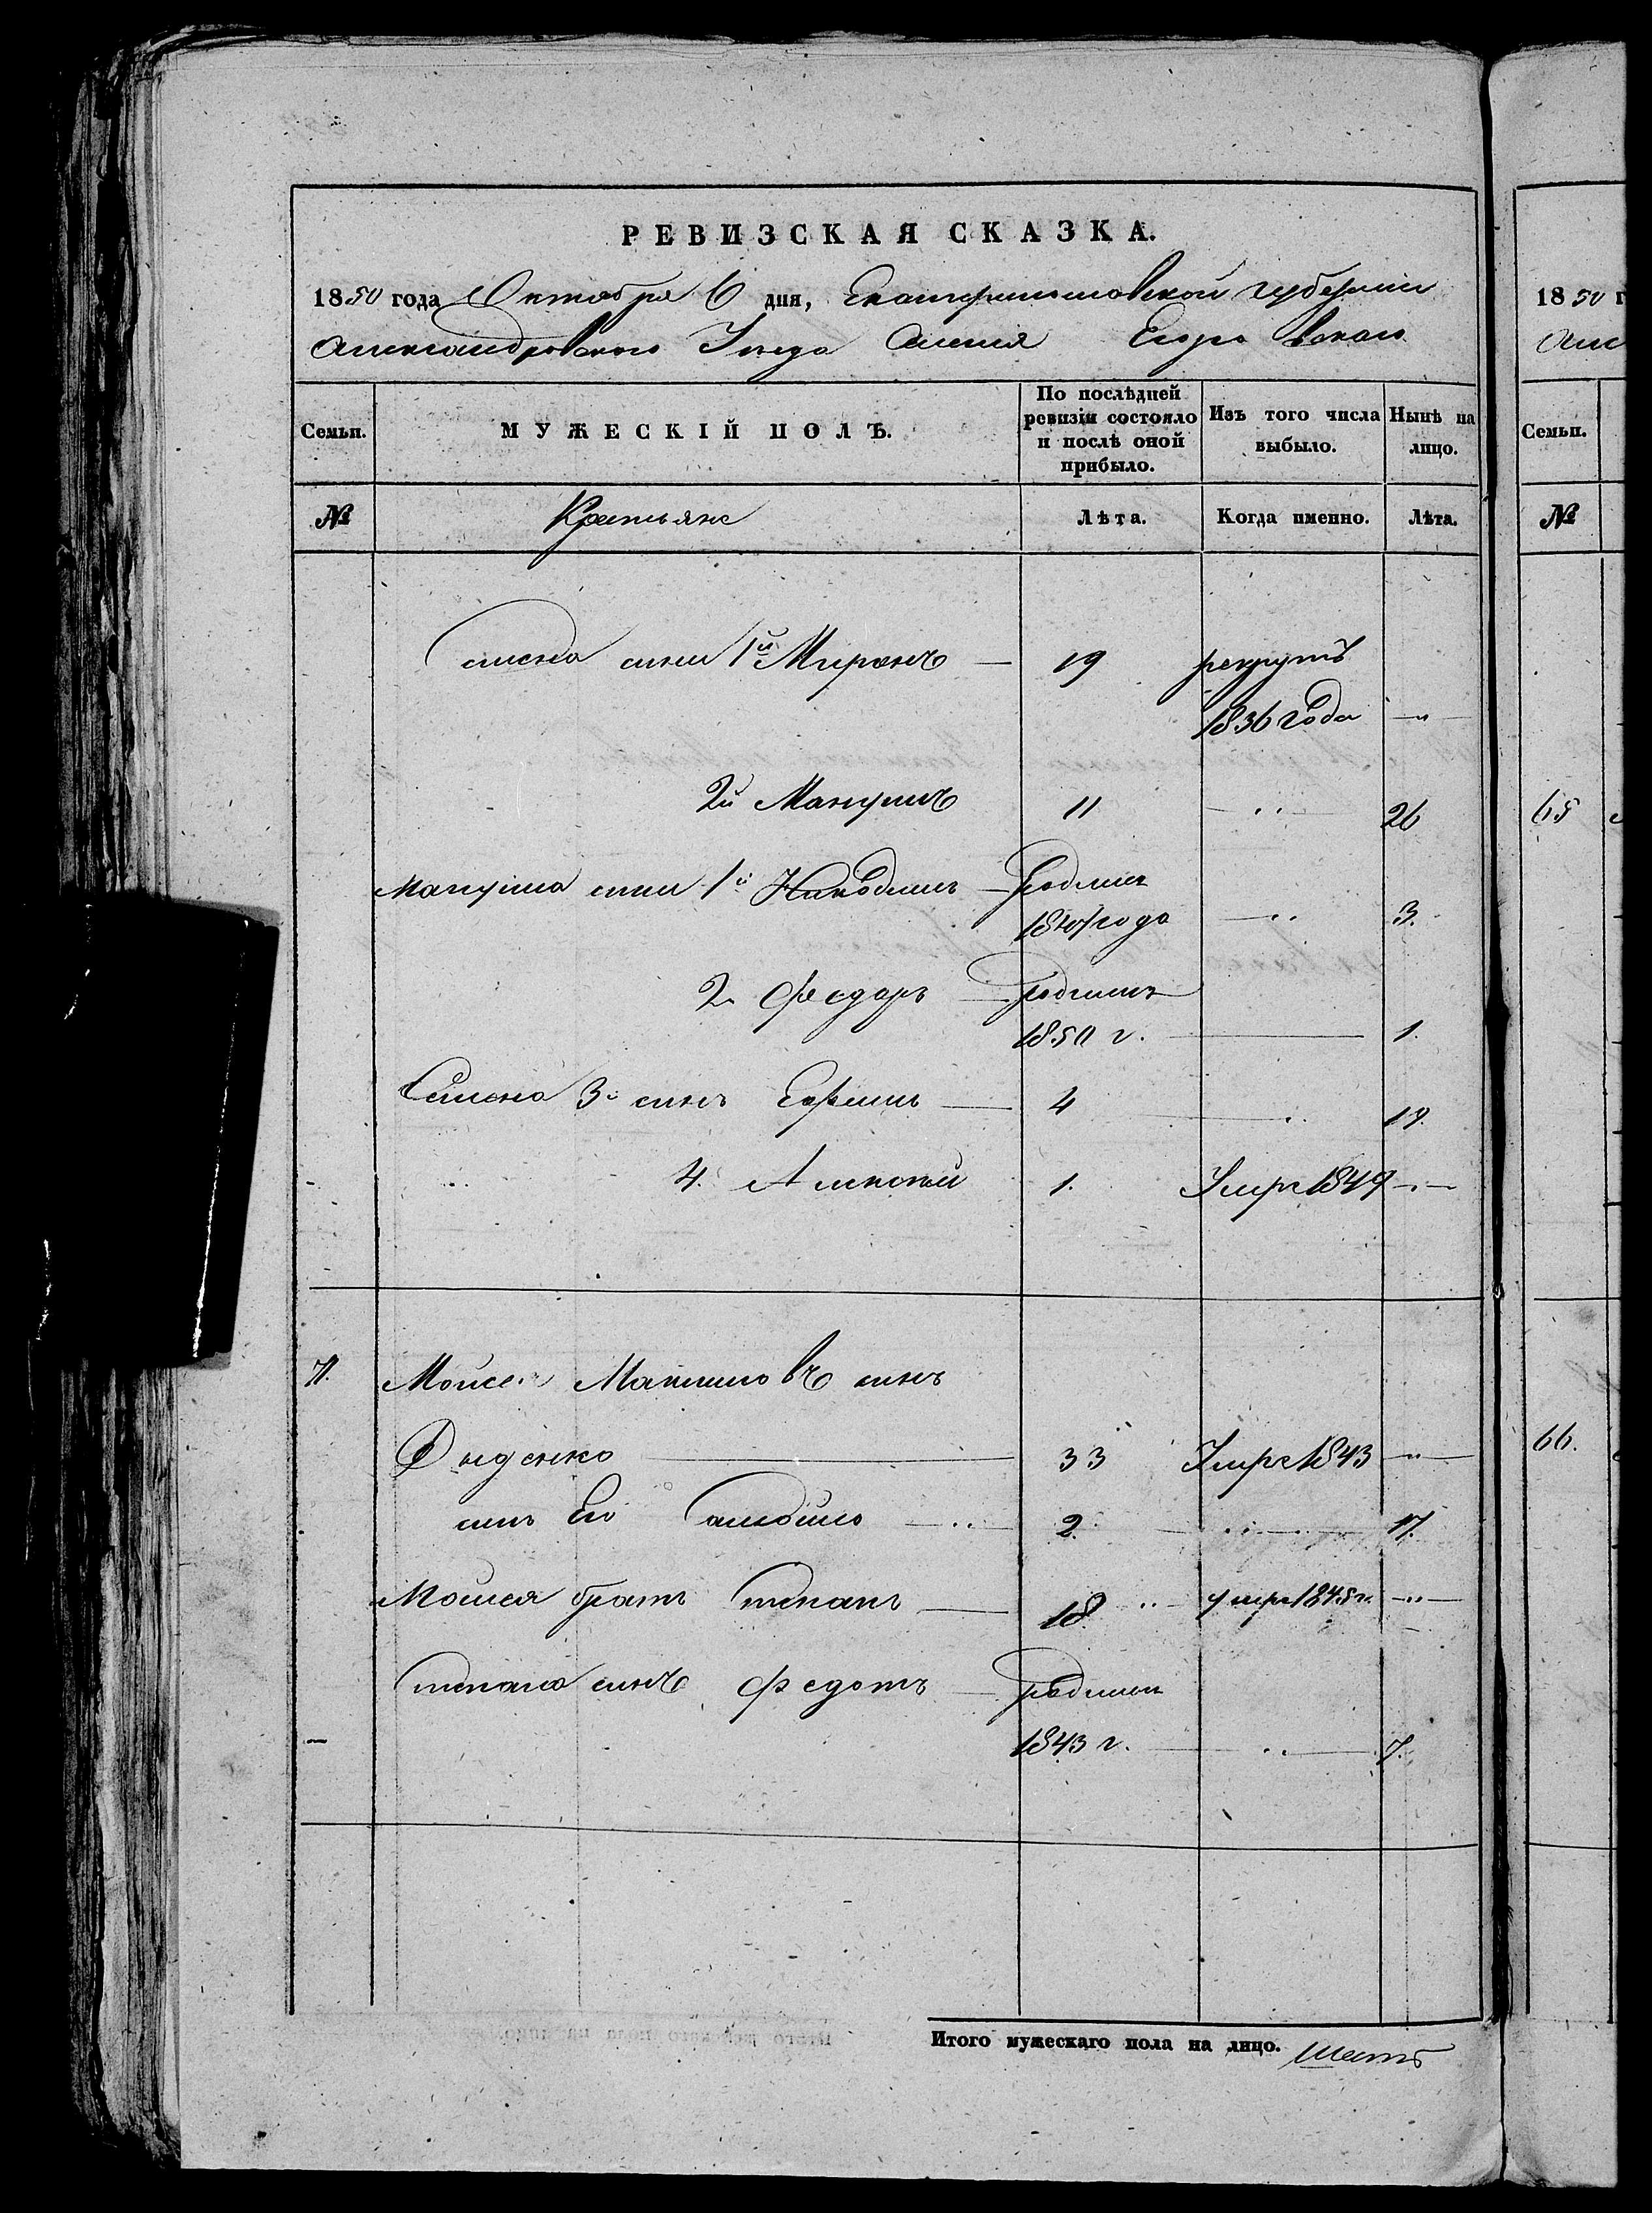 РЕВИЗСКАЯ СКАЗКА.
1850 года Октября 6 дня, Екатеринославской губернии
Александровского Уезда Имения Егоровскаго
Семьи. МУЖЕСКІЙ ПОЛЪ. По послѣдней ревизіи состояло и послѣ оной прибыло. Изъ того числа выбыло. Нынѣ на лицо.
№ Крестьяне Лѣта. Когда именно. Лѣта.
Семена сыни 1й Миронъ — 19 рекрутъ
1836 года — " —
2й Мануилъ 11 — " — 26
Мануила сыни 1й Никодимъ — родился
1847 года — " — 3.
2. Федоръ — родился
1850 г. — 1.
Семена 3й сынъ Ефимъ — 4 — " — 19.
4. Алексей 1. Умре 1849 — " —
71. Моисей Максимовъ сынъ
Диденко — 33 Умре 1843 — " —
сынъ Его Самойло — " — 2. — " — 17.
Моисея братъ Степанъ — 18. " умре 1845 г. — " —
Степана сынъ Федотъ — родился
1843 г. — " — 7.
Итого мужескаго пола на лицо. шесть
1850 г
Але
Семьи.
№
65
66.